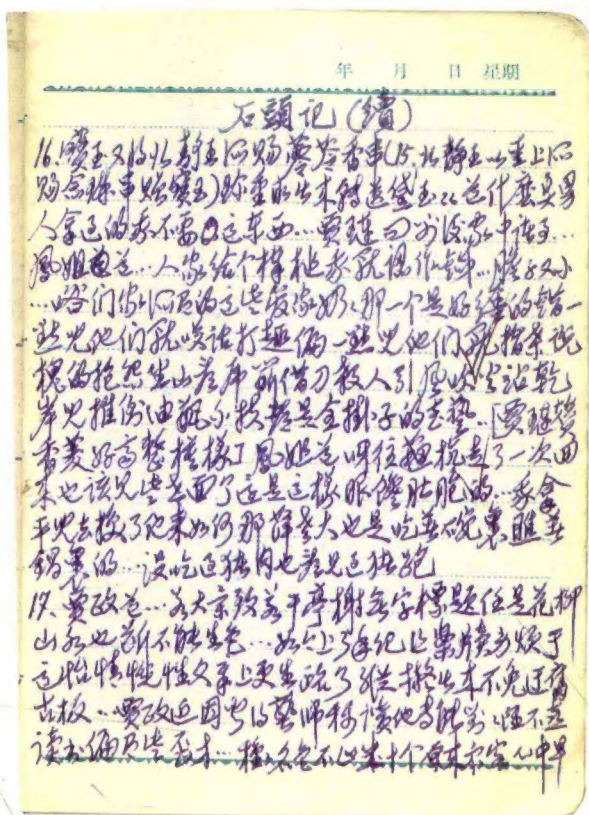 年 月 日 星期
石頭记(續)
16.寶玉又将北静王所赐蕶苓香串(15.北静王以圣上所
赐念珠串赠寶玉)珍重取出来转送黛玉 什麽臭男
人拿过的我不要这东西…賈璉
鳳姐道…人家给个棒槌我就认作针…膽子又小
…咱们家所有的这些管家奶奶那一个是好缠的错一
点兒他们就笑话打趣偏一点兒他们就指桑说
槐的抱怨坐山看虎鬥借刀殺人引風吹火站乾
岸兒推倒油瓶不扶都是全掛子的武藝…[賈璉
香菱好高整模樣]鳳姐道 往蘇杭走了一次回
来也该见些世面了还是这樣眼饞肚飽的…我拿
平兒去换了他来如何那薛老大也是吃着碗裏瞧着
鍋裏的…没吃过猪肉也看过猪跑
17.賈政道…若大景致若干亭榭無字標題任是花柳
山水也断不能生色…
这怡情悦性文章上更生疏了縱擬出来不免迂腐
古板…賈政近因 讀他 對 不喜
读书偏有些歪才…